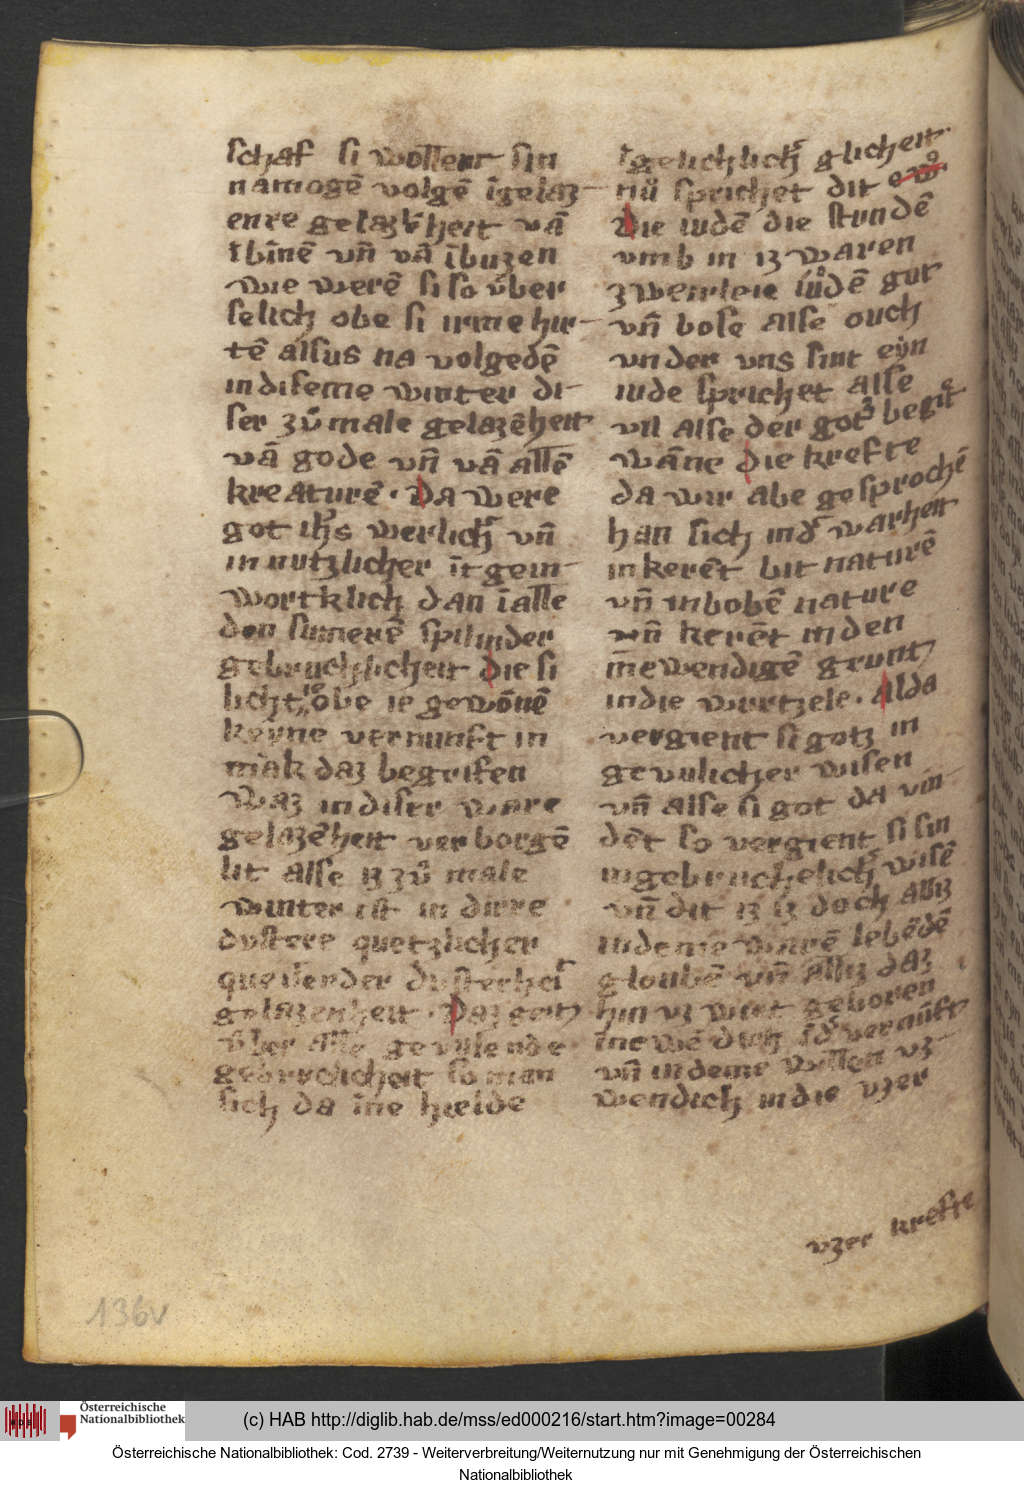 schaf si wollent sin
na mogē volgē ī gelaz
enre gelazēheit vā
ībīnē vn̄ vā ībuzen
wie werē si so v́ber
selich obe si irme hir
tē alsus na volgedē
in diseme winter di
ser zv̊ male gelazēheit
vā gode vn̄ vā allē
kreaturē · Da were
got ihs werlich vn̄
in nutzlicher īt gein
wortklich dan ī alle
den sumerē sp
gebruchlicheit die si
licht obe ie gewōnē
keyne vernunft in
mak daz begrifen
waz in diser ware
gelazēheit verborgē
lit alse iz zv̊ male
winter ist in dirre
dvstere quetzlicher
quellender dvsterheit
gelazenheit · Daz geit
v́ber alle gevulende
gebruclicheit so man
sich da īne hielde
gelichlich glicheit ·
nv̊ sprichet dit eẘ
Die iudē die stundē
vmb in iz waren
zweirleie iv̊dē gut
vn̄ bose alse ouch
vnder vns sint eyn
iude sprichet alse
vil alse der gotz begit
wāne die krefte
da wir abe gesprochē
han sich ind' warheit
in kerēt bit naturē
vn̄ inbobē nature
vn̄ kerēt in den
īnewendigē grunt
in die wurtzele · Alda
vergient si gotz in
gevulicher wisen
vn̄ alse si got da vin
dēt so vergient si sin
in gebruchelich wisē
vn̄ dit iz iz doch alliz
in deme warē lebēdē
gloubē vn̄ alliz daz
hin vz wirt geboren
īnewē dich īd' v́nu̇ft
vn̄ in deme willen vz
wendich in die vzer
vzer krefte
136v
Österreichische
Nationalbibliothek
(c) HAB http://diglib.hab.de/mss/ed000216/start.htm?image=00284
Österreichische Nationalbibliothek: Cod. 2739 - Weiterverbreitung/Weiternutzung nur mit Genehmigung der Österreichischen
Nationalbibliothek